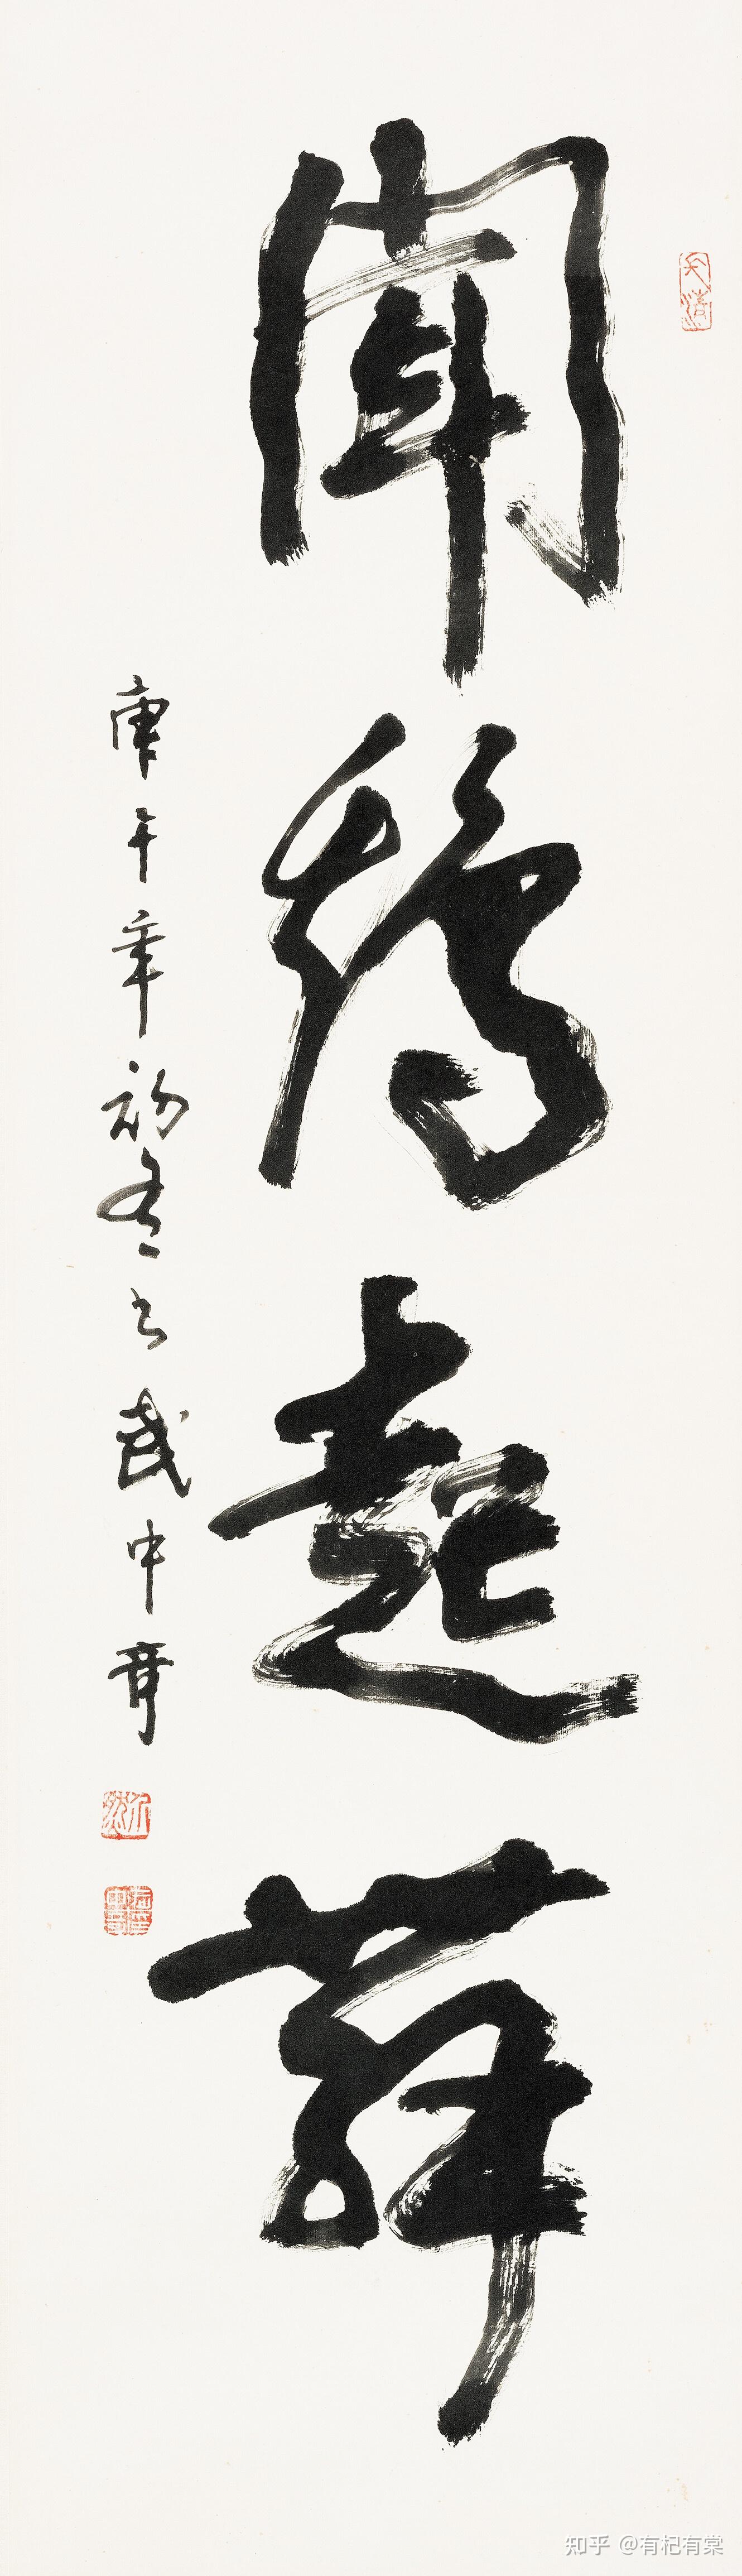 闻鸡起舞
庚午年初冬之武中奇
知乎 @有杞有棠